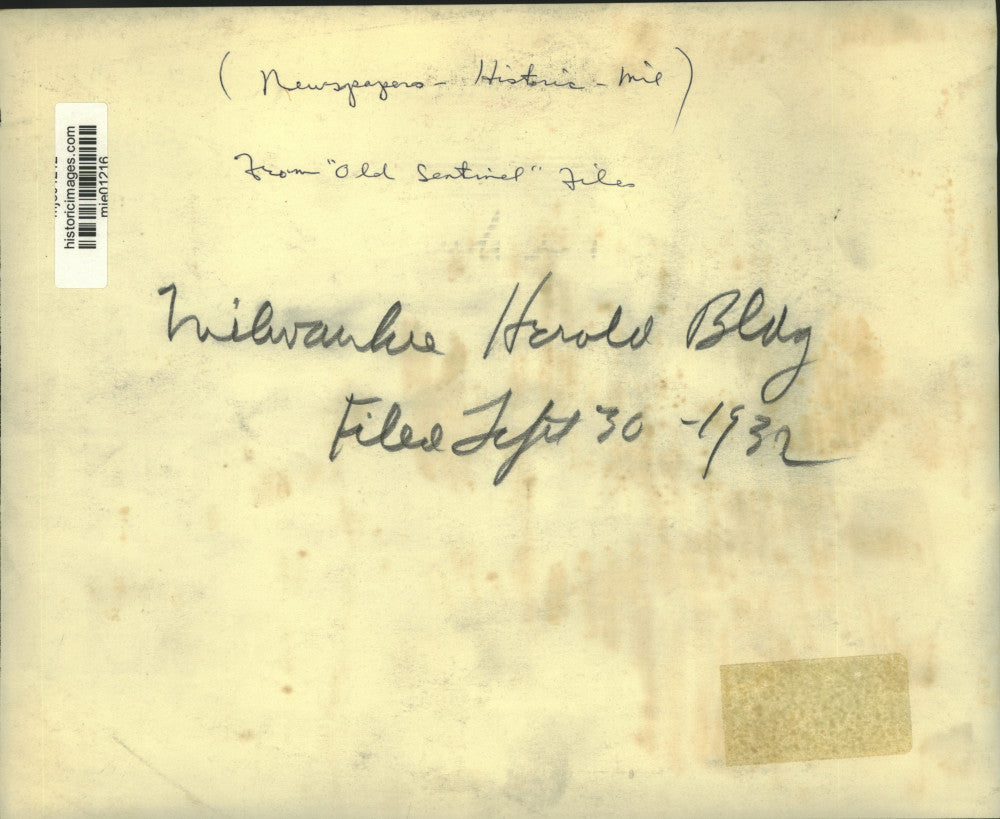 ( Newspapers - Historic - Mil )
From "Old Sentinel" Files
historicimages.com
mie01216
Milwaukee Herold Bldg
Filed Sept 30 - 1932